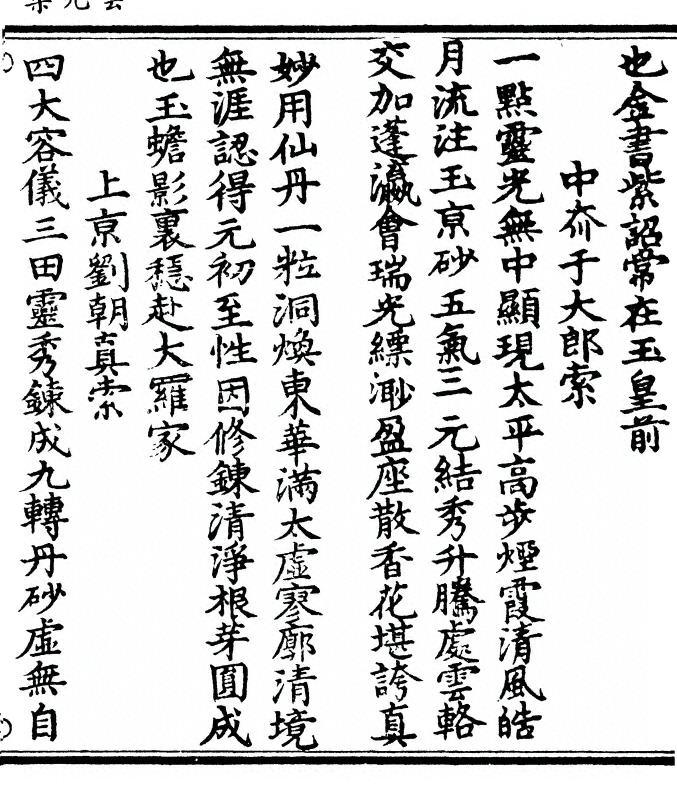 也金書紫詔常在玉皇前
中夼于大郎索
一點靈光無中顯現太平高步煙霞清風皓
月流注玉京砂五氣三元結秀升騰處雲輅
交加蓬瀛會瑞光縹渺盈座散香花堪誇真
妙用仙丹一粒洞煥東華滿太虛寥廓清境
無涯認得元初至性因修鍊清淨根芽圓成
也玉蟾影裏穩赴大羅家
上京劉朝真索
四大容儀三田靈秀鍊成九轉丹砂虛無自